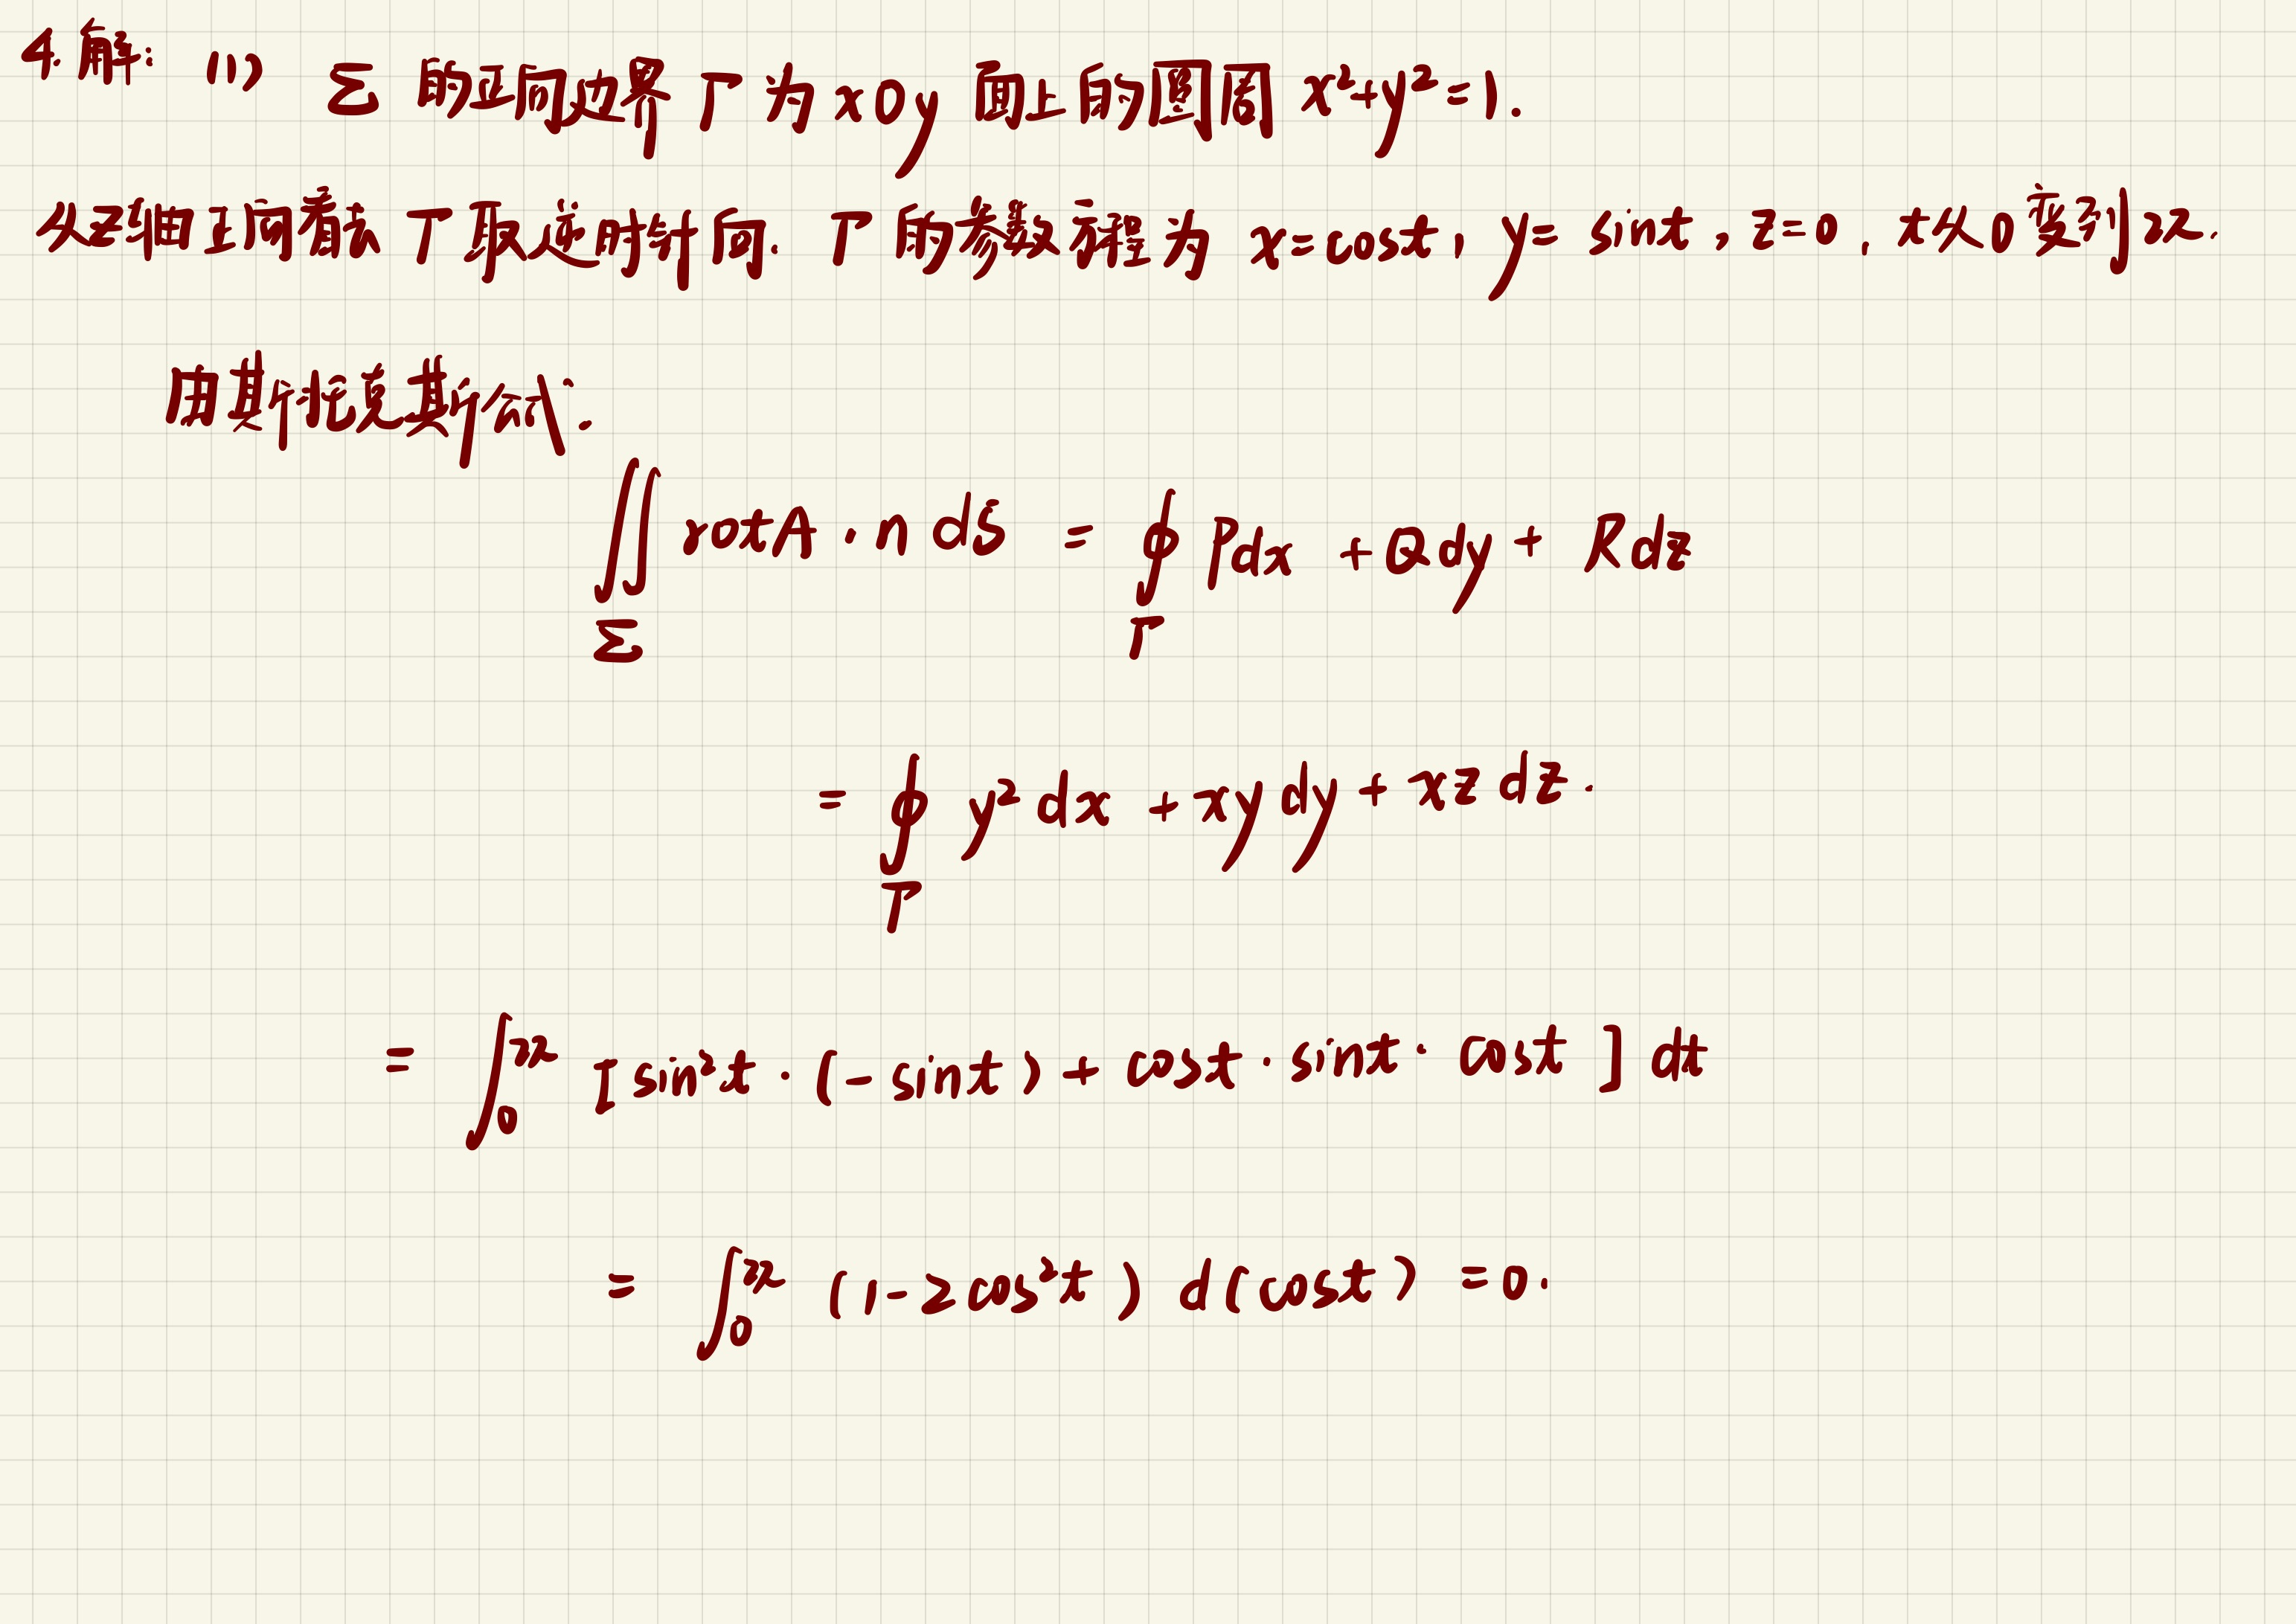 4.解: (1) Σ 的正向边界 Γ 为 xOy 面上的圆周 x²+y²=1.
从z轴正向看去 Γ 取逆时针向. Γ 的参数方程为 x=cost, y= sint, z=0, t从0变到2π.
用斯托克斯公式:
∬_Σ rotA · n dS = ∮_Γ Pdx + Qdy + Rdz
= ∮_Γ y² dx + xy dy + xz dz.
= ∫₀^{2π} [sin²t · (-sint) + cost · sint · cost] dt
= ∫₀^{2π} (1-2cos²t) d(cost) =0.